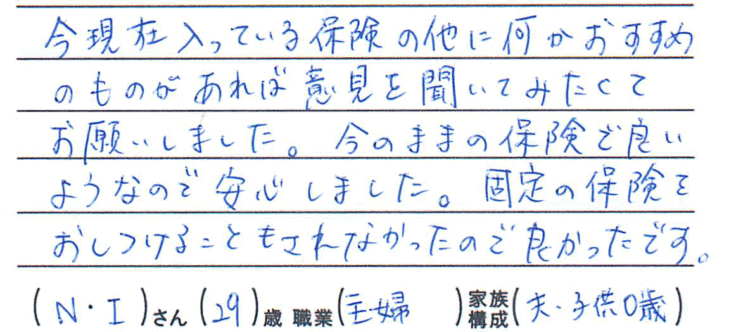 今現在入っている保険の他に何かおすすめ
のものがあれば意見を聞いてみたくて
お願いしました。今のままの保険で良い
ようなので安心しました。固定の保険を
おしつけることもされなかったので良かったです。
(N・I)さん(29)歳 職業(主婦)家族構成(夫・子供0歳)